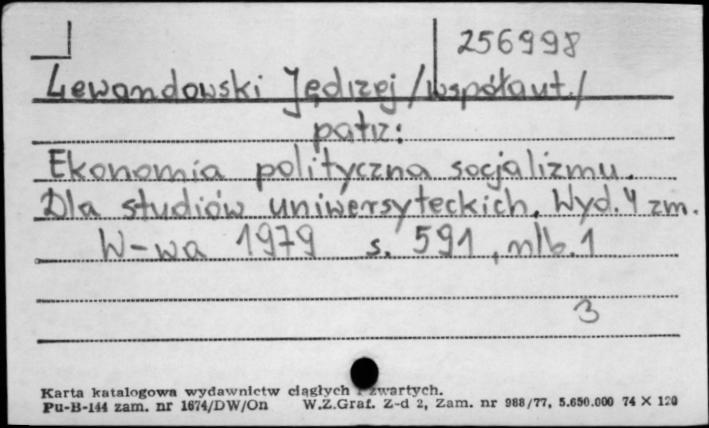 256998
Lewandowski Jędrzej /współaut./
patrz:
Ekonomia polityczna socjalizmu.
Dla studiów uniwersyteckich. Wyd. 4 zm.
W-wa 1979 s. 591, nlb. 1
3
Karta katalogowa wydawnictw ciągłych i zwartych.
Pu-B-144 zam. nr 1674/DW/On W.Z.Graf. Z-d 2, Zam. nr 988/77, 5.650.000 74 X 120